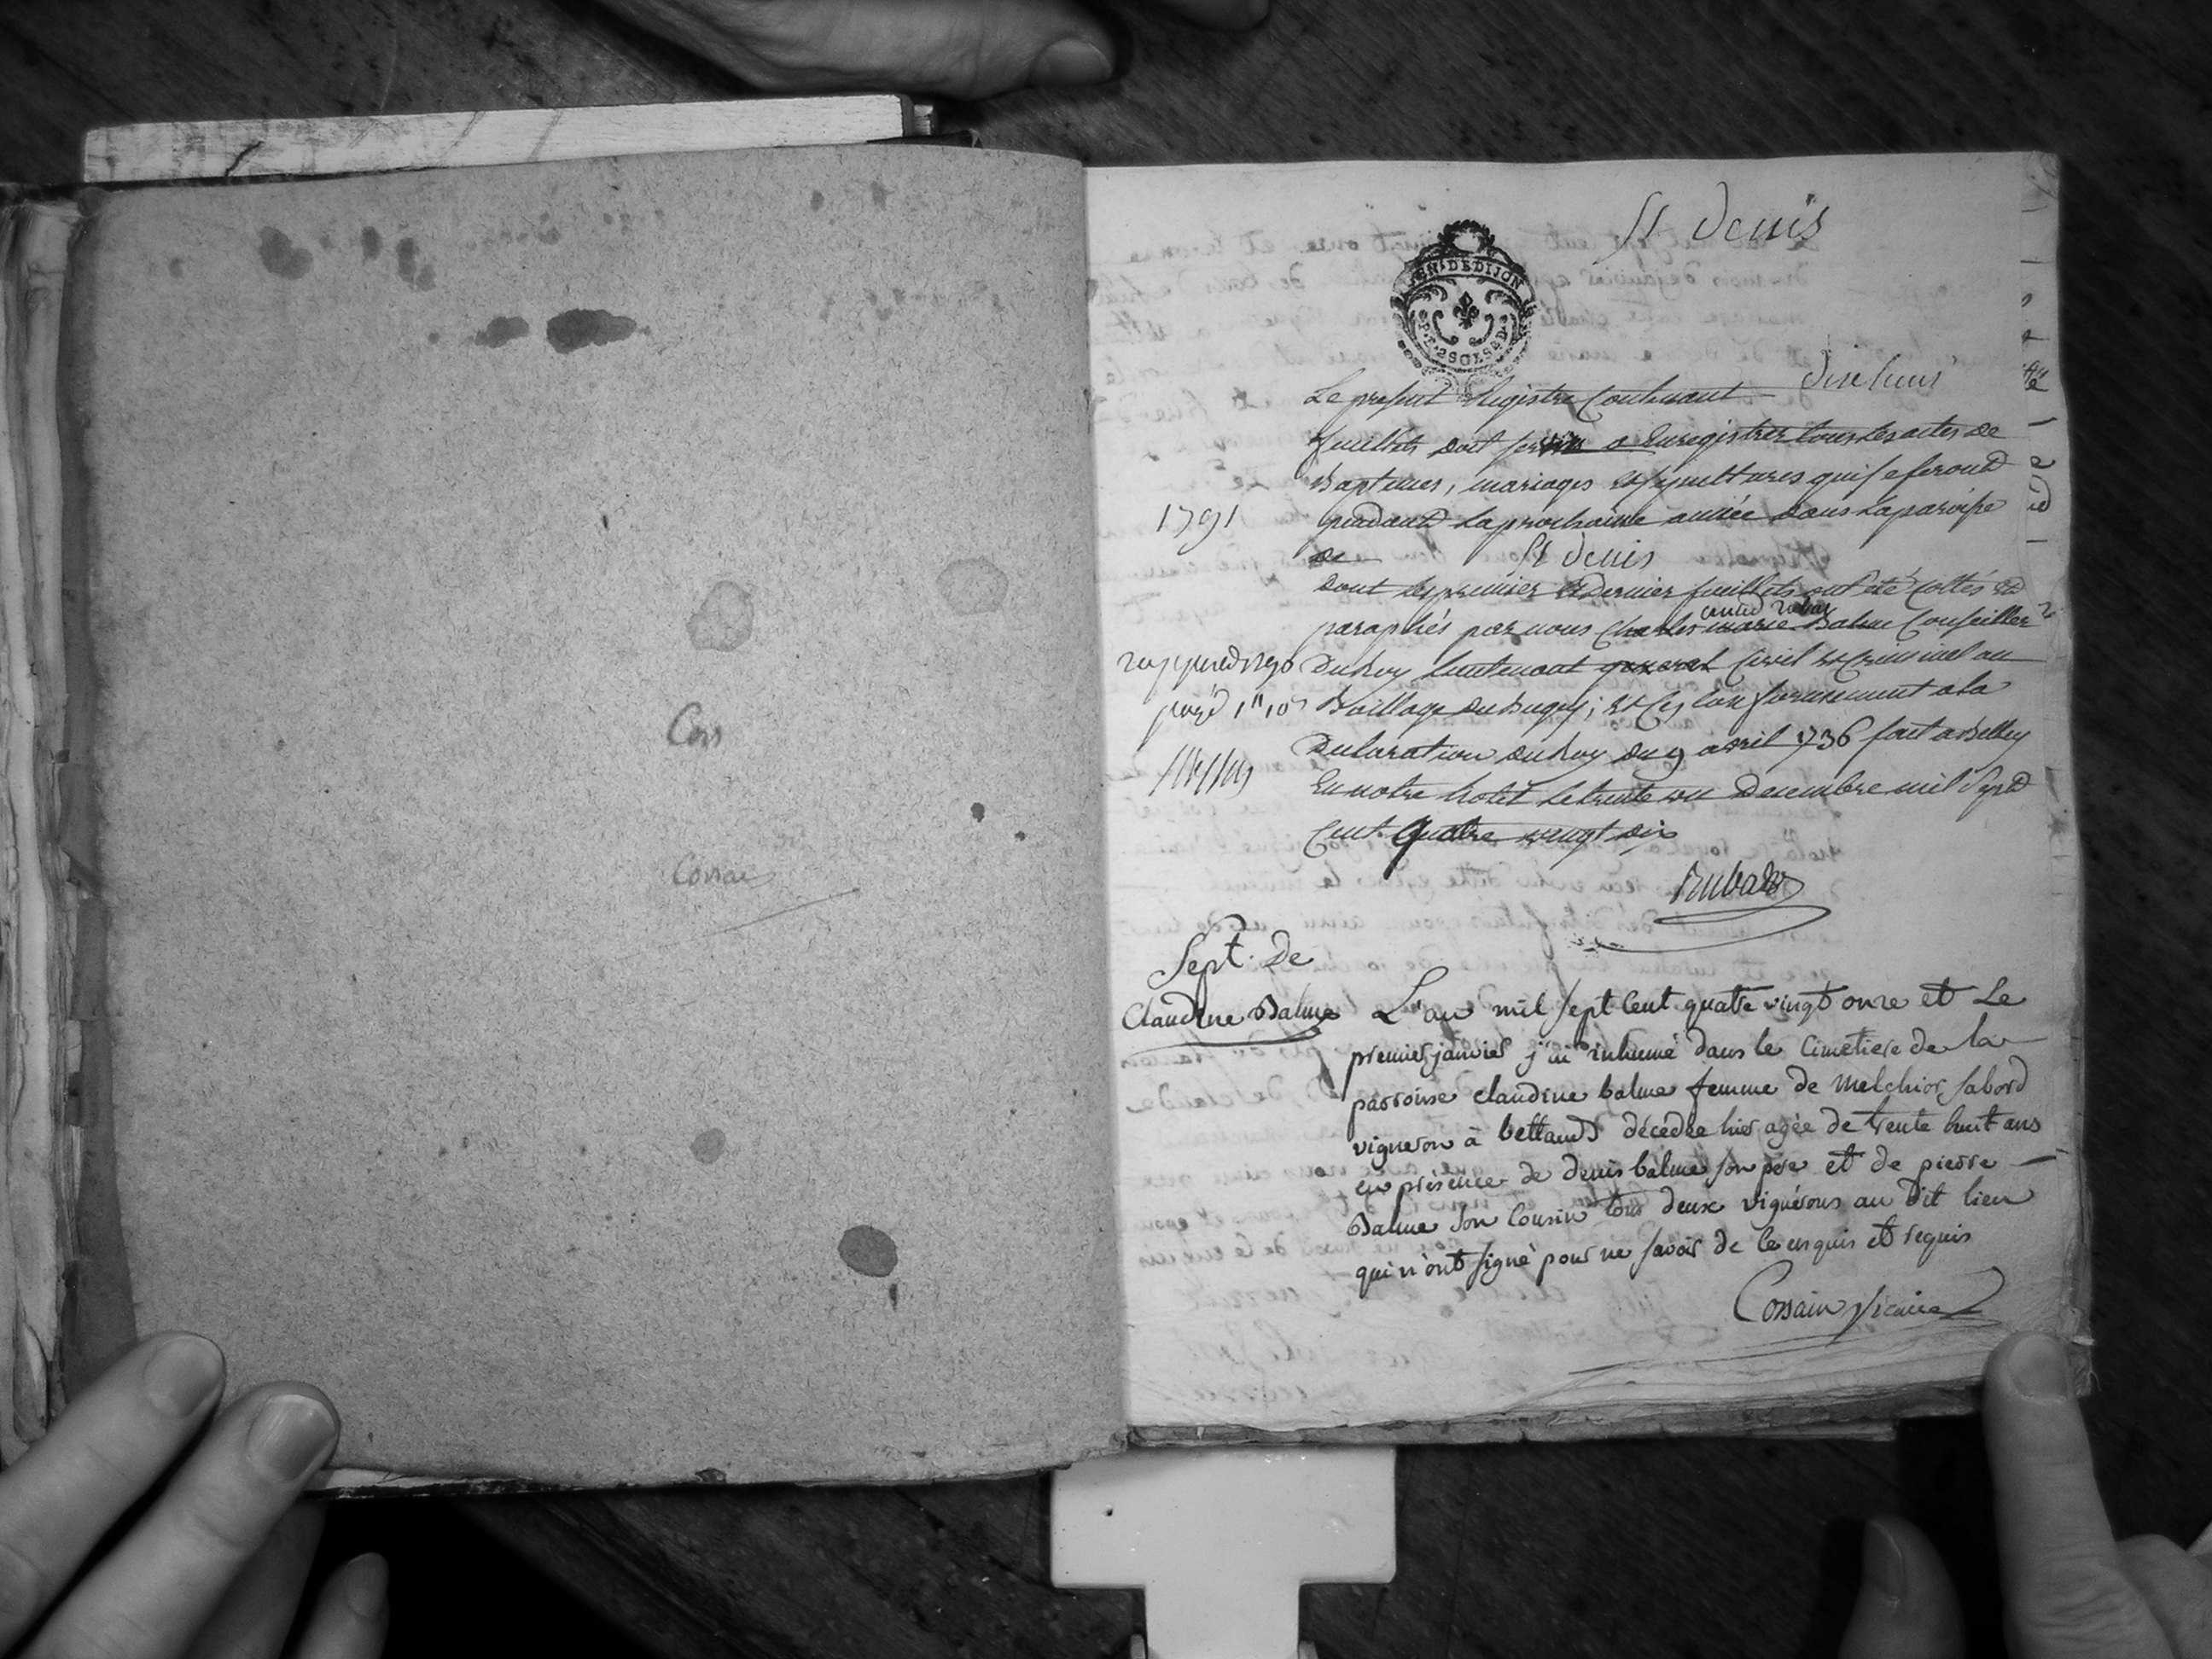 Cors
Corrai
St denis
GEN. DE DIJON
2 SOLS 8 D
Le present Registre Contenant dix huit
feuillets doit servir a Enregistrer tous les actes de
Baptemes, mariages et sepultures qui se feront
1791
pendant la prochaine année dans la paroisse
de St denis
dont les premier et dernier feuillets ont été cottés et
paraphés par nous Charles marie Balme Conseiller
du Roy lieutenant general Civil et Criminel au
payé
Baillage du Bugey; et Ce Conformement a la
Declaration du Roy du 9 avril 1736 fait a Belley
En notre hotel le trente un Decembre mil sept
Cent quatre vingt dix
Rubat
Sept. de
Claudine Balme
L'an mil sept cent quatre vingt onze et Le
premier janvier j'ai inhumé dans le cimetiere de la
parroisse claudine balme femme de melchior sabord
vigneron à bettand décédée hier agée de trente huit ans
en présence de denis balme son père et de pierre
Balme son cousin tous deux vignérons au dit lieu
qui n'ont signé pour ne savoir de ce enquis et requis
Corsain vicaire